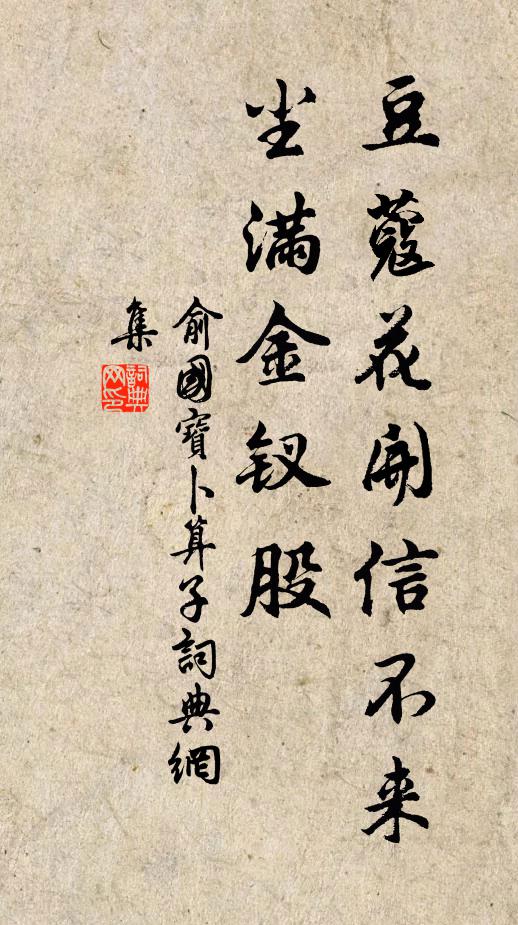 豆蔻花開信不来
尘满金钗股
俞國寶卜算子詞典網
集
詞典
网印